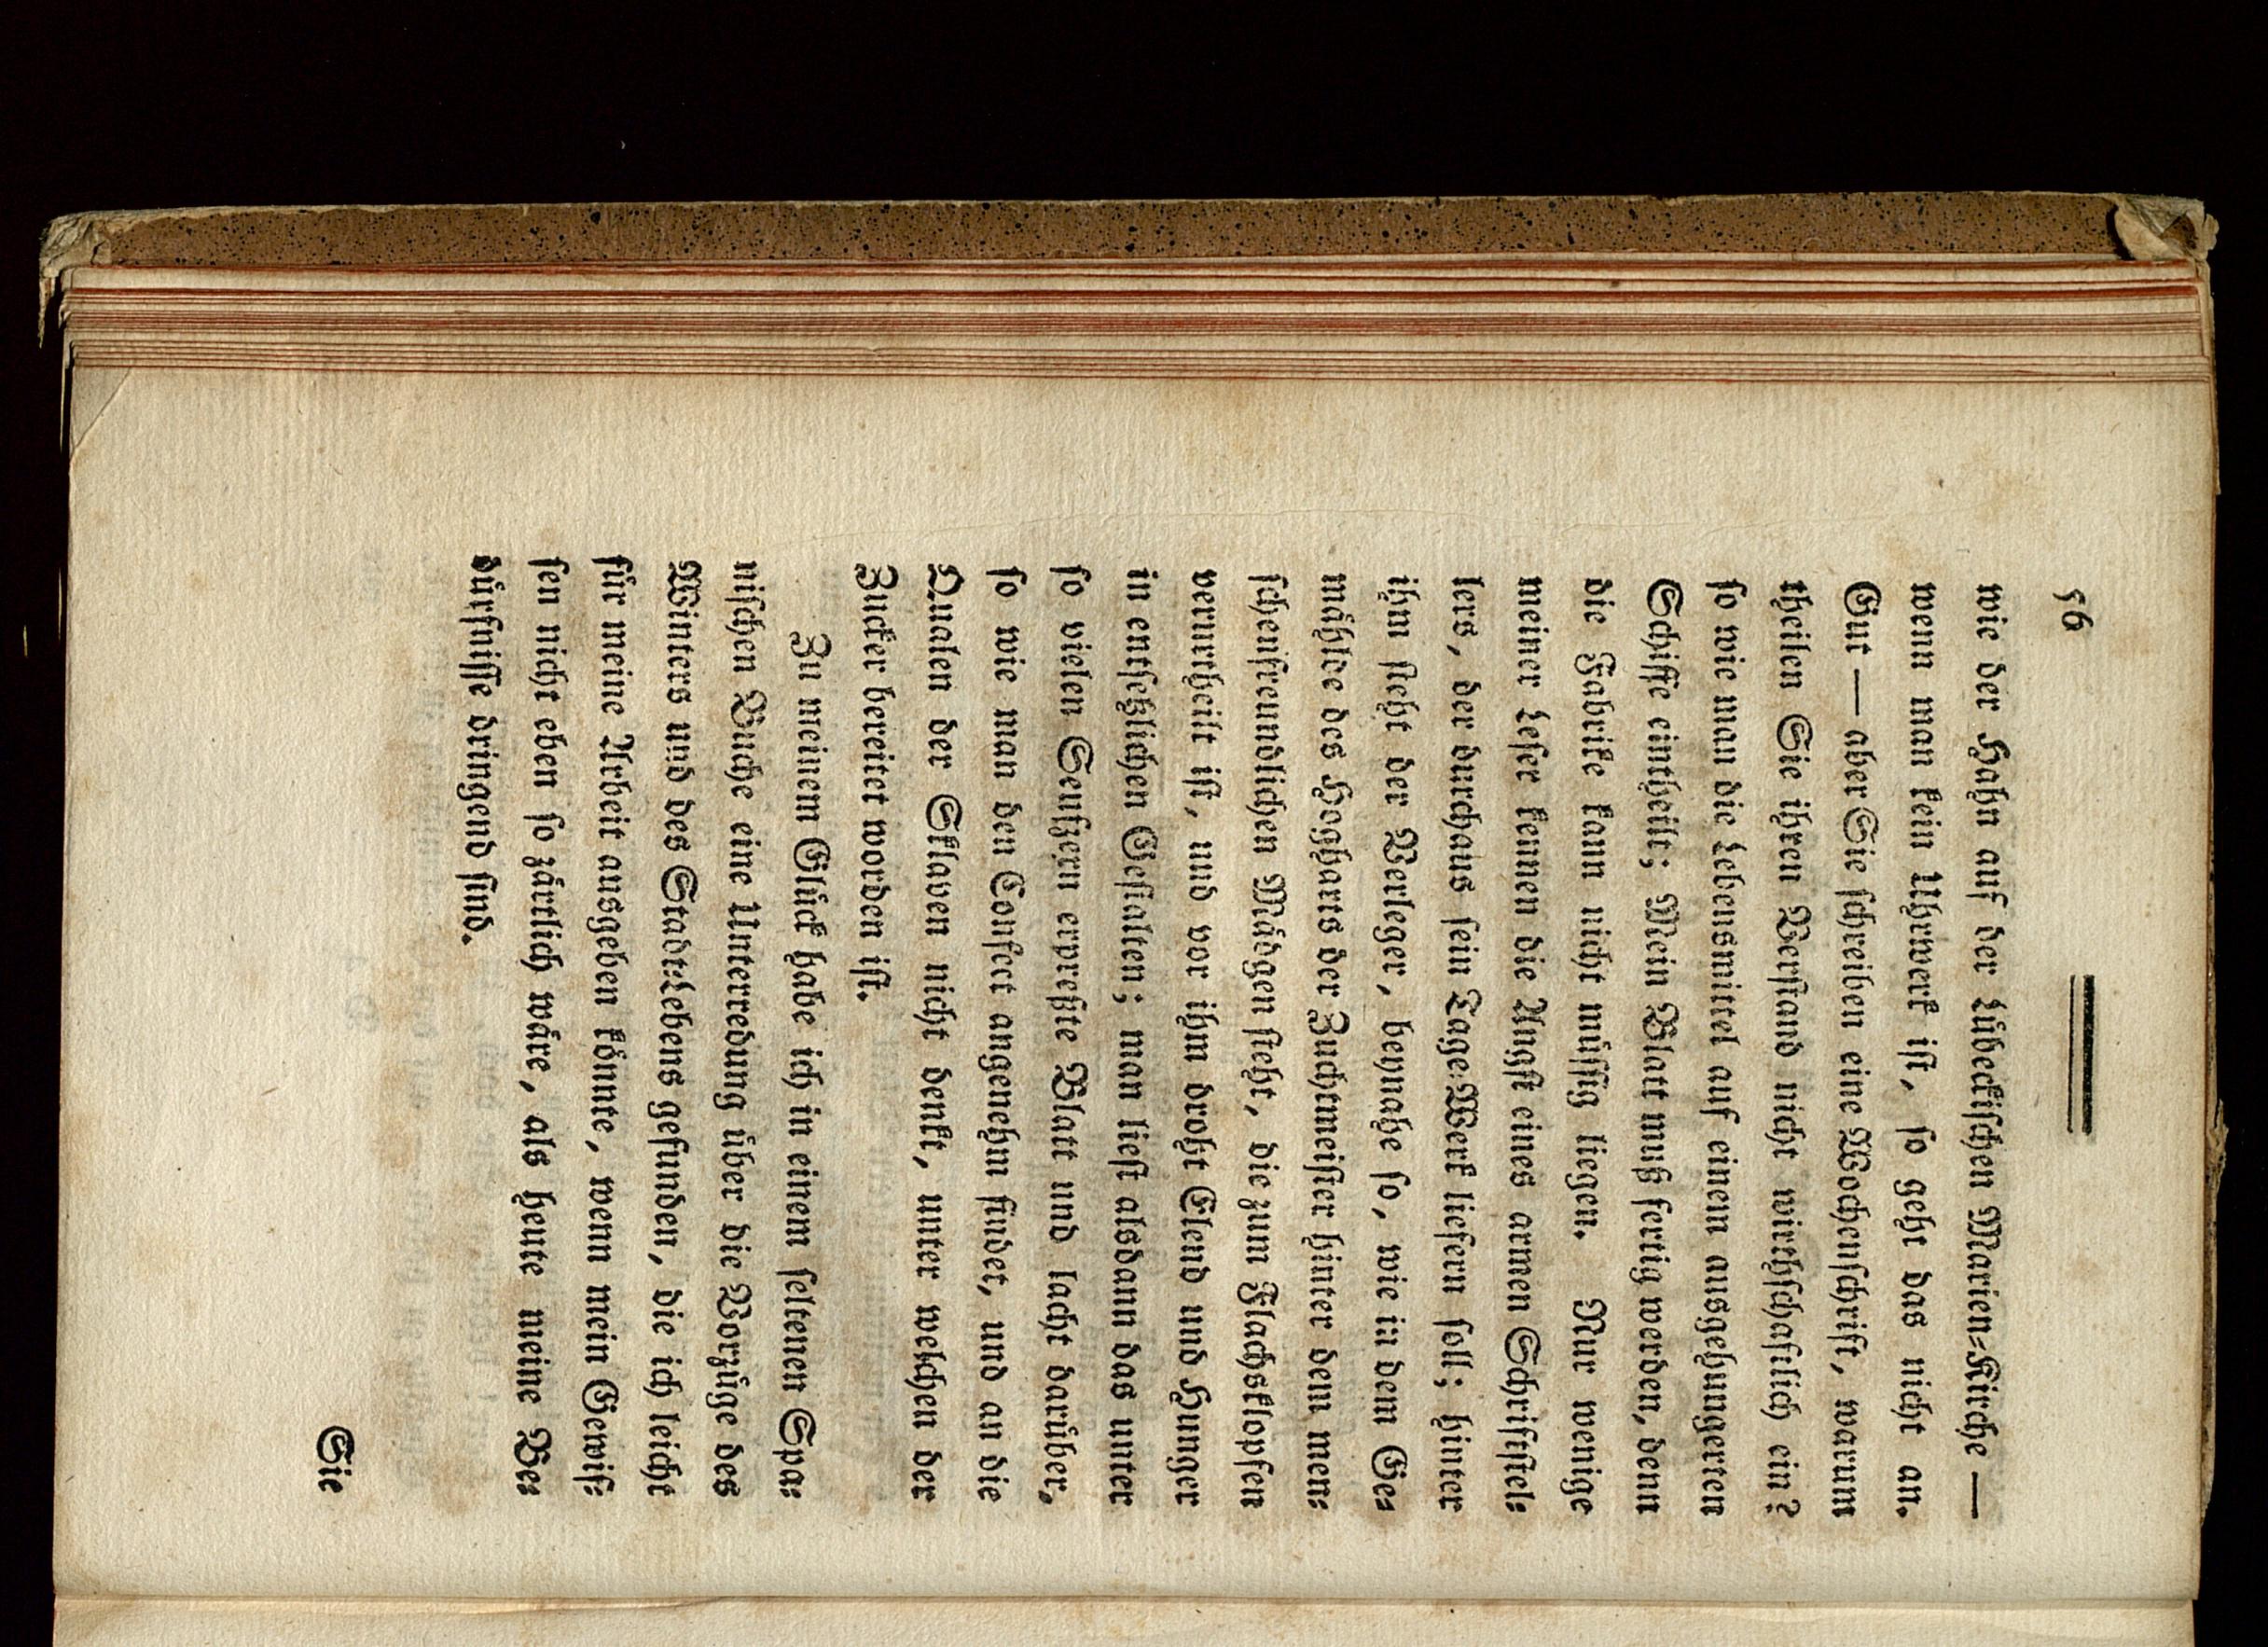 56
wie der Hahn auf der Lübeckiſchen Marien⸗Kirche —
wenn man kein Uhrwerk iſt, ſo geht das nicht an.
Gut — aber Sie ſchreiben eine Wochenſchrift, warum
theilen Sie ihren Verſtand nicht wirthſchaftlich ein?
ſo wie man die Lebensmittel auf einem ausgehungerten
Schiffe eintheilt; Mein Blatt muß fertig werden, denn
die Fabrike kann nicht müſſig liegen. Nur wenige
meiner Leſer kennen die Angſt eines armen Schriftſtel⸗
lers, der durchaus ſein Tage⸗Werk liefern ſoll; hinter
ihm ſteht der Verleger, beynahe ſo, wie in dem Ge⸗
mählde des Hogharts der Zuchtmeiſter hinter dem men⸗
ſchenfreundlichen Mädgen ſteht, die zum Flachsklopfen
verurtheilt iſt, und vor ihm droht Elend und Hunger
in entſetzlichen Geſtalten; man lieſt alsdann das unter
ſo vielen Seufzern erpreßte Blatt und lacht darüber,
ſo wie man den Confect angenehm findet, und an die
Qualen der Sklaven nicht denkt, unter welchen der
Zucker bereitet worden iſt.
Zu meinem Glück habe ich in einem ſeltenen Spa⸗
niſchen Buche eine Unterredung über die Vorzüge des
Winters und des Stadt⸗Lebens gefunden, die ich leicht
für meine Arbeit ausgeben könnte, wenn mein Gewiſ⸗
ſen nicht eben ſo zärtlich wäre, als heute meine Be⸗
dürfniſſe dringend ſind.
Sie